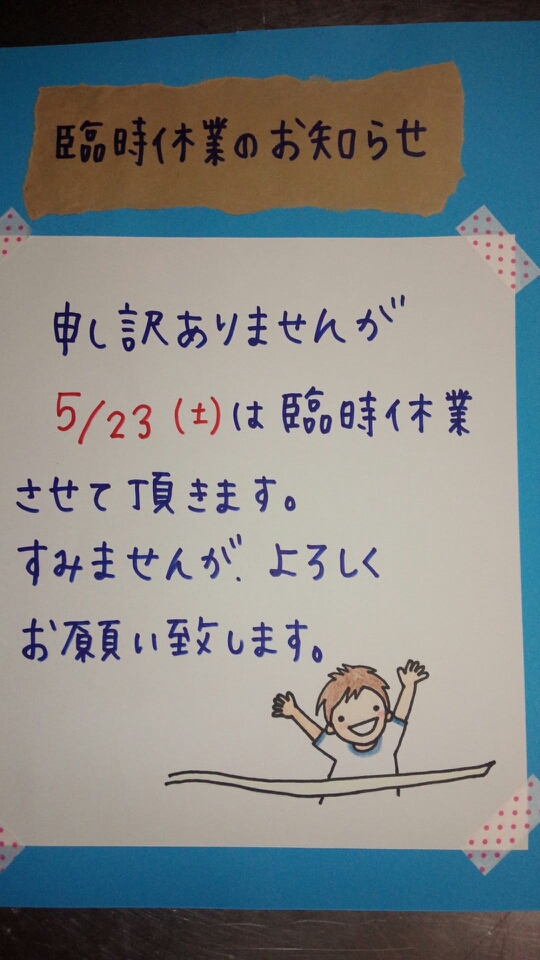 臨時休業のお知らせ
申し訳ありませんが
5/23(土)は臨時休業
させて頂きます。
すみませんが、よろしく
お願い致します。